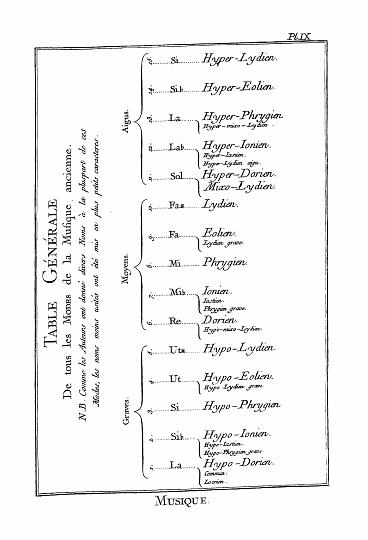 Pl. IX
TABLE GÉNÉRALE
De tous les Modes de la Musique ancienne.
N.B. Comme les Auteurs ont donné divers Noms à la plupart de ces
Modes, les noms moins usités ont été mis en plus petits caracteres.
Aigus.
15. Si Hyper-Lydien.
14. Sib Hyper-Eolien.
13. La Hyper-Phrygien
Hyper-mixo-Lydien.
12. Lab Hyper-Ionien.
Hyper-Iastien.
Hyper-Lydien aigu.
11. Sol Hyper-Dorien.
Mixo-Lydien.
Moyens.
10. Fa# Lydien.
9. Fa Eolien.
Lydien grave.
8. Mi Phrygien.
7. Mib Ionien.
Iastien.
Phrygien grave.
6. Re Dorien.
Hypo-mixo-Lydien.
Graves.
5. Ut# Hypo-Lydien.
4. Ut Hypo-Eolien.
Hypo-Lydien grave.
3. Si Hypo-Phrygien
2. Sib Hypo-Ionien.
Hypo-Iastien.
Hypo-Phrygien grave.
1. La Hypo-Dorien.
Commun.
Locrien.
MUSIQUE.